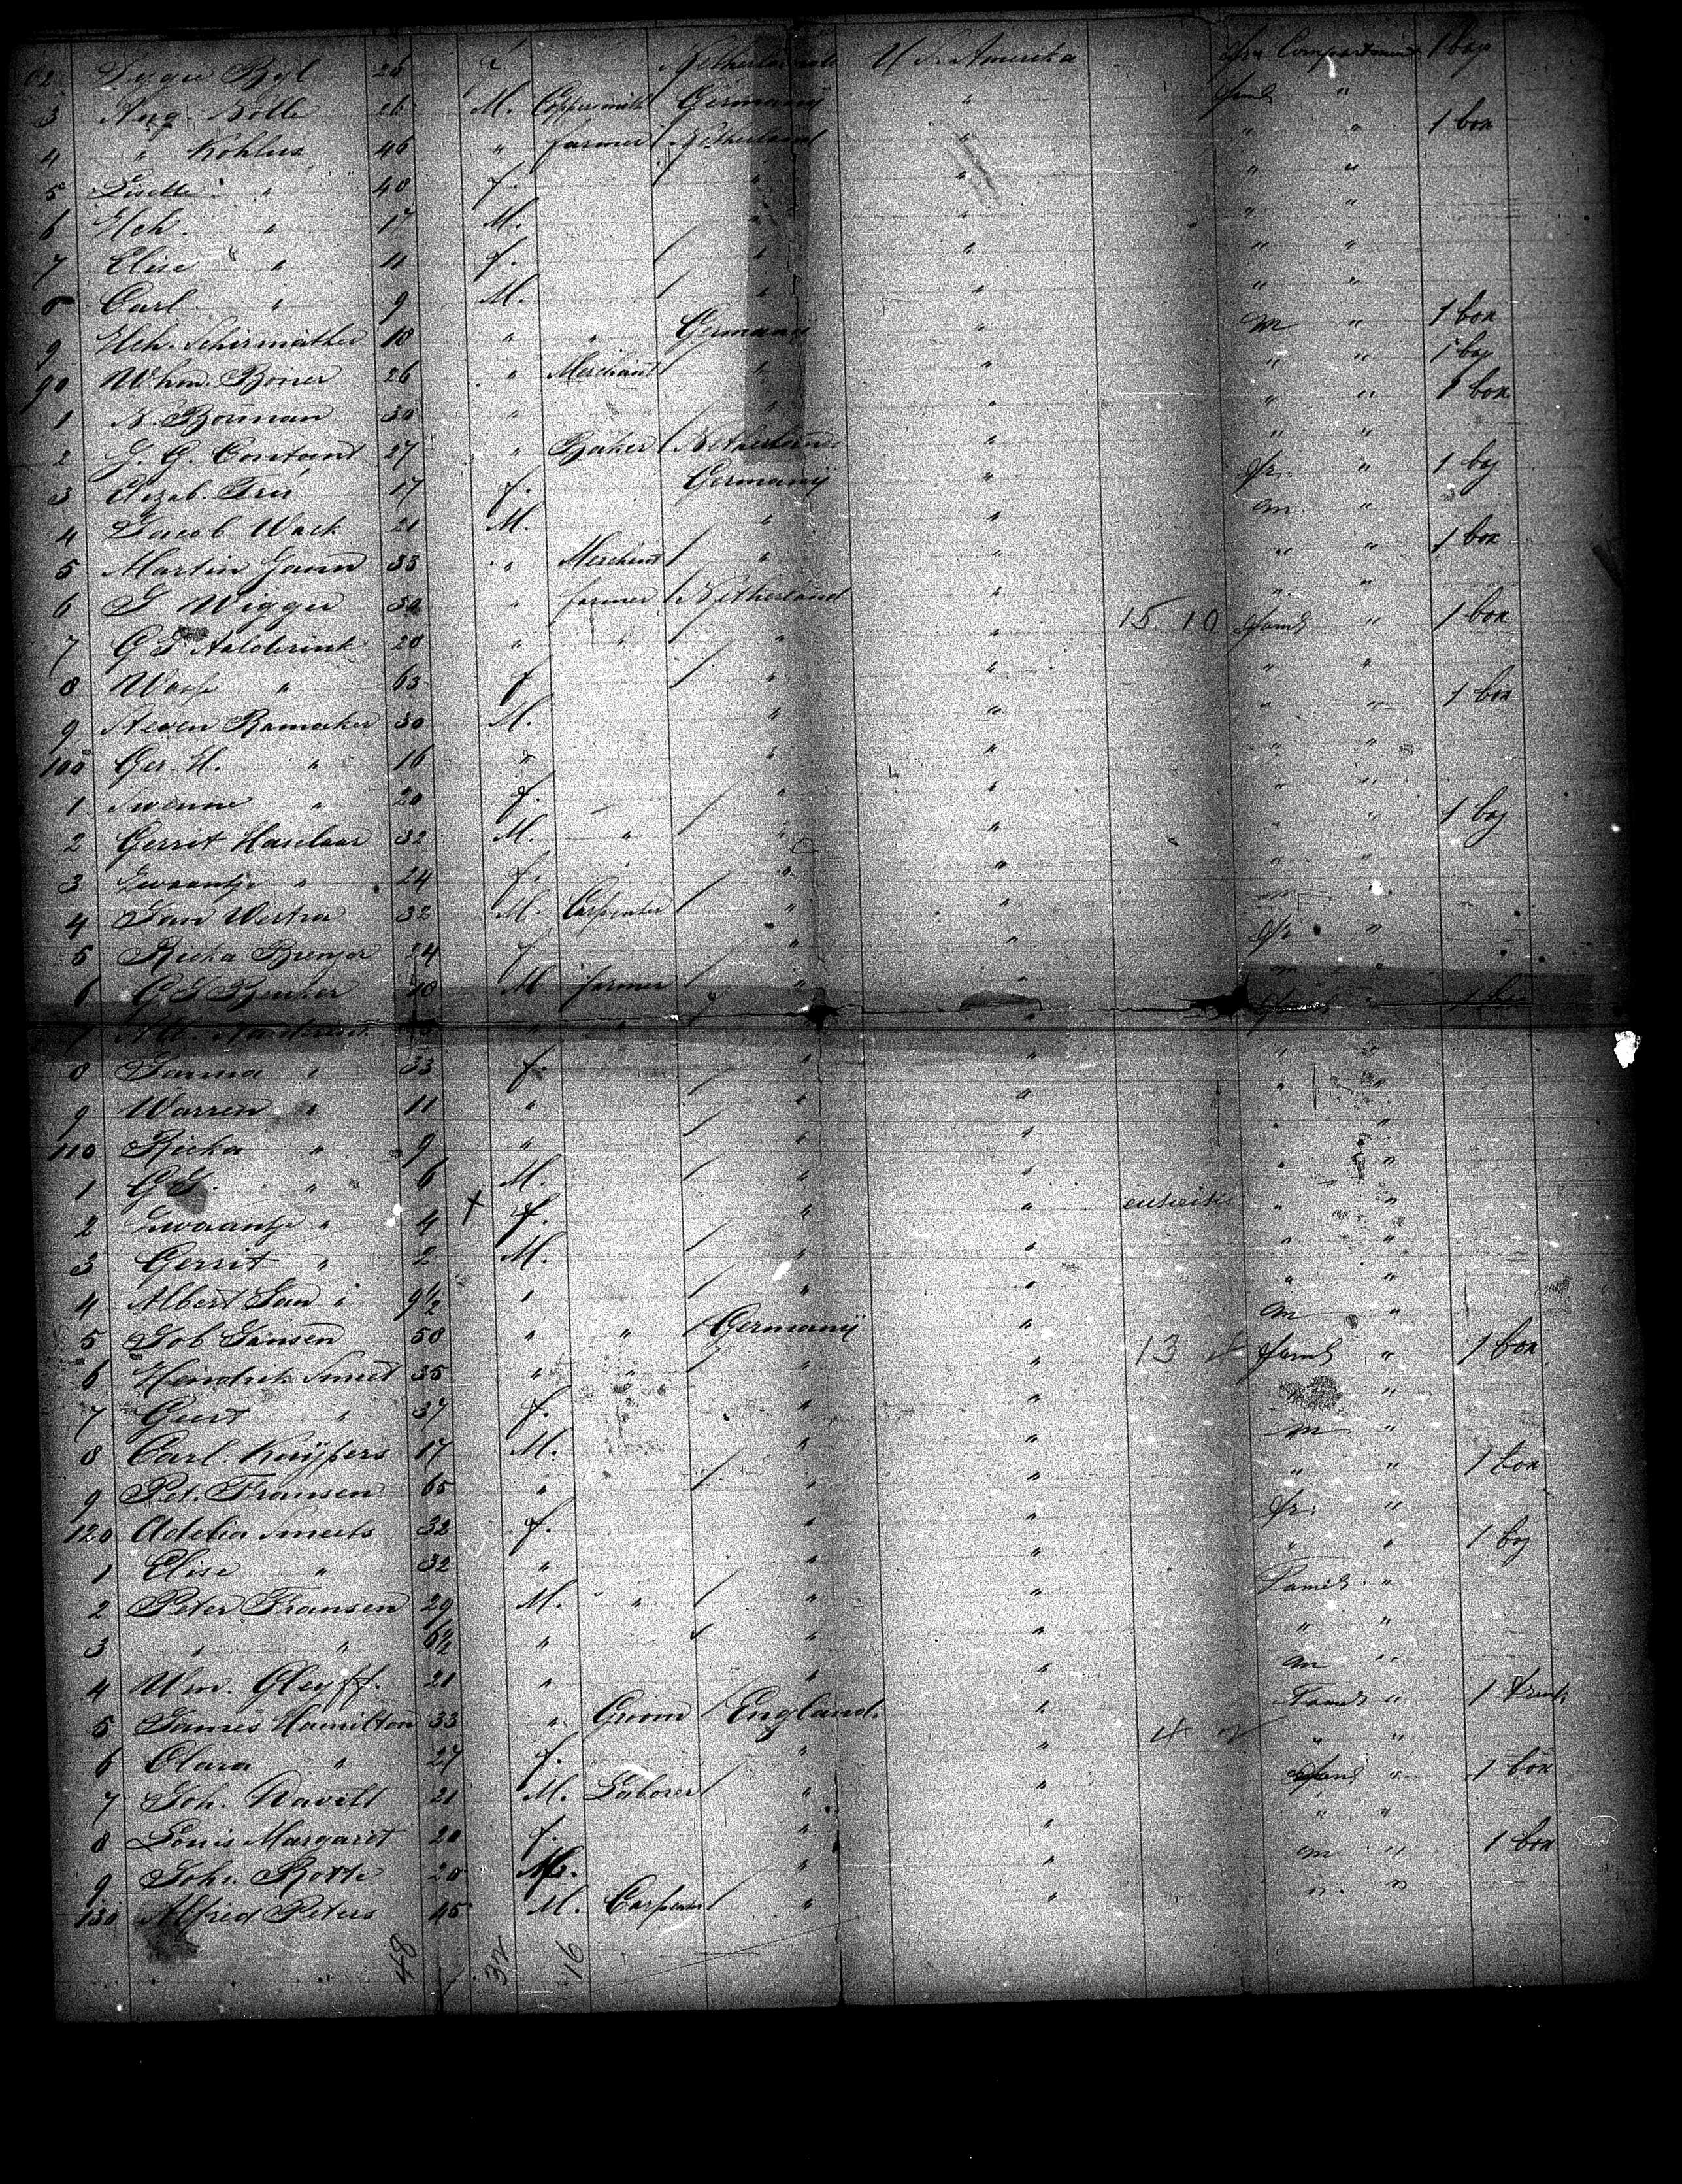 82 Bijl 26 f Netherlands U S. Amerika Fr. Compartment 1 bag
3 Aug. Kolle 26 M. Coppersmith Germany " Faml "
4 " Kohlus 46 " farmer Netherland " " " 1 box
5 Lisette " 48 f. " " " "
6 Hch. " 17 M. " " " "
7 Elise " 11 f. / " " " "
8 Carl " 9 M. / " " " "
9 Hch. Schirmather 18 " " Germany " m " 1 box
90 Whm. Boner 26 " Merchant / " " " " 1 bag
1 N. Bouman 30 " / " " " " 1 box
2 J. G. Constand 27 " Baker / Netherland " " "
3 Elizab. Frei 17 f. Germany " fr. " 1 bag
4 Jacob Wack 21 M. " " m "
5 Martin Jann 33 " Merchant / " " " " 1 box
6 G Wigger 30 " farmer / Netherland " " "
7 G J Aalderink 28 " " / " " 15 10 Faml " 1 box
8 " 63 f / " " " "
9 Steven Ramaker 30 M. " " " " 1 box
100 Ger. H. " 16 " " " " "
1 Swenne " 20 f. / " " " "
2 Gerrit Haselaar 32 M. " / " " " " 1 bag
3 Zwaantje " 24 f. " " " "
4 Jan Westra 32 M. Carpenter / " " m "
5 Ricka Brenjer 24 f / " " fr "
6 C J Benker 48 M farmer / " " m "
7 " " / " 1 box
8 Janna " 33 f. / " " " "
9 Warren " 11 " / " " " "
110 Ricka " 9 " / " " " "
1 G J. " 6 M. / " " " "
2 Zwaantje " 4 X f. " " " "
3 Gerrit " 2 M. / " " " "
4 Albert Jan " 9/12 " / " " " "
5 Job Jansen 50 " " / Germany " m "
6 Hendrik Smeet 35 " " / " " 13 Faml " 1 box
7 Geert " 37 f. " " "
8 Carl. Kuijpers 17 M. " " m "
9 Pet. Fransen 65 " / " " " " 1 box
120 Adelia Smeets 32 f. " " fr. "
1 Elise " 32 " " " " " 1 bag
2 Peter Fransen 29 M. " / " " Famil "
3 " " " " " " "
4 Wm. Gleyff. 21 " " " m "
5 James Hamilton 33 " Groom / England. " Famil " 1 trunk
6 Clara " 27 f. " " 4 " "
7 Joh. Navelt 21 M. Laborer / " " Faml " 1 box
8 Louis Margaret 20 f. " " " "
9 Joh. Rotte 20 M. " " m " 1 box
130 Alfred Peters 45 M. Carpenter / " " " "
48 32 16